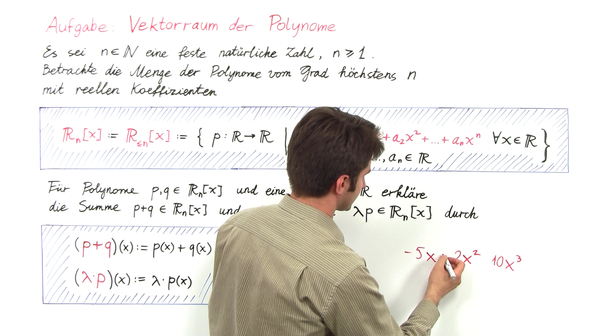 Aufgabe: Vektorraum der Polynome
Es sei n ∈ ℕ eine feste natürliche Zahl, n ≥ 1.
Betrachte die Menge der Polynome vom Grad höchstens n
mit reellen Koeffizienten
ℝₙ[x] := ℝ≤ₙ[x] := { p : ℝ → ℝ | + a₂x² + ... + aₙxⁿ ∀x ∈ ℝ }
..., aₙ ∈ ℝ
Für Polynome p,q ∈ ℝₙ[x] und ℝ erkläre
die Summe p+q ∈ ℝₙ[x] und λp ∈ ℝₙ[x] durch
(p+q)(x) := p(x) + q(x)
(λ·p)(x) := λ · p(x)
-5x 2x² 10x³